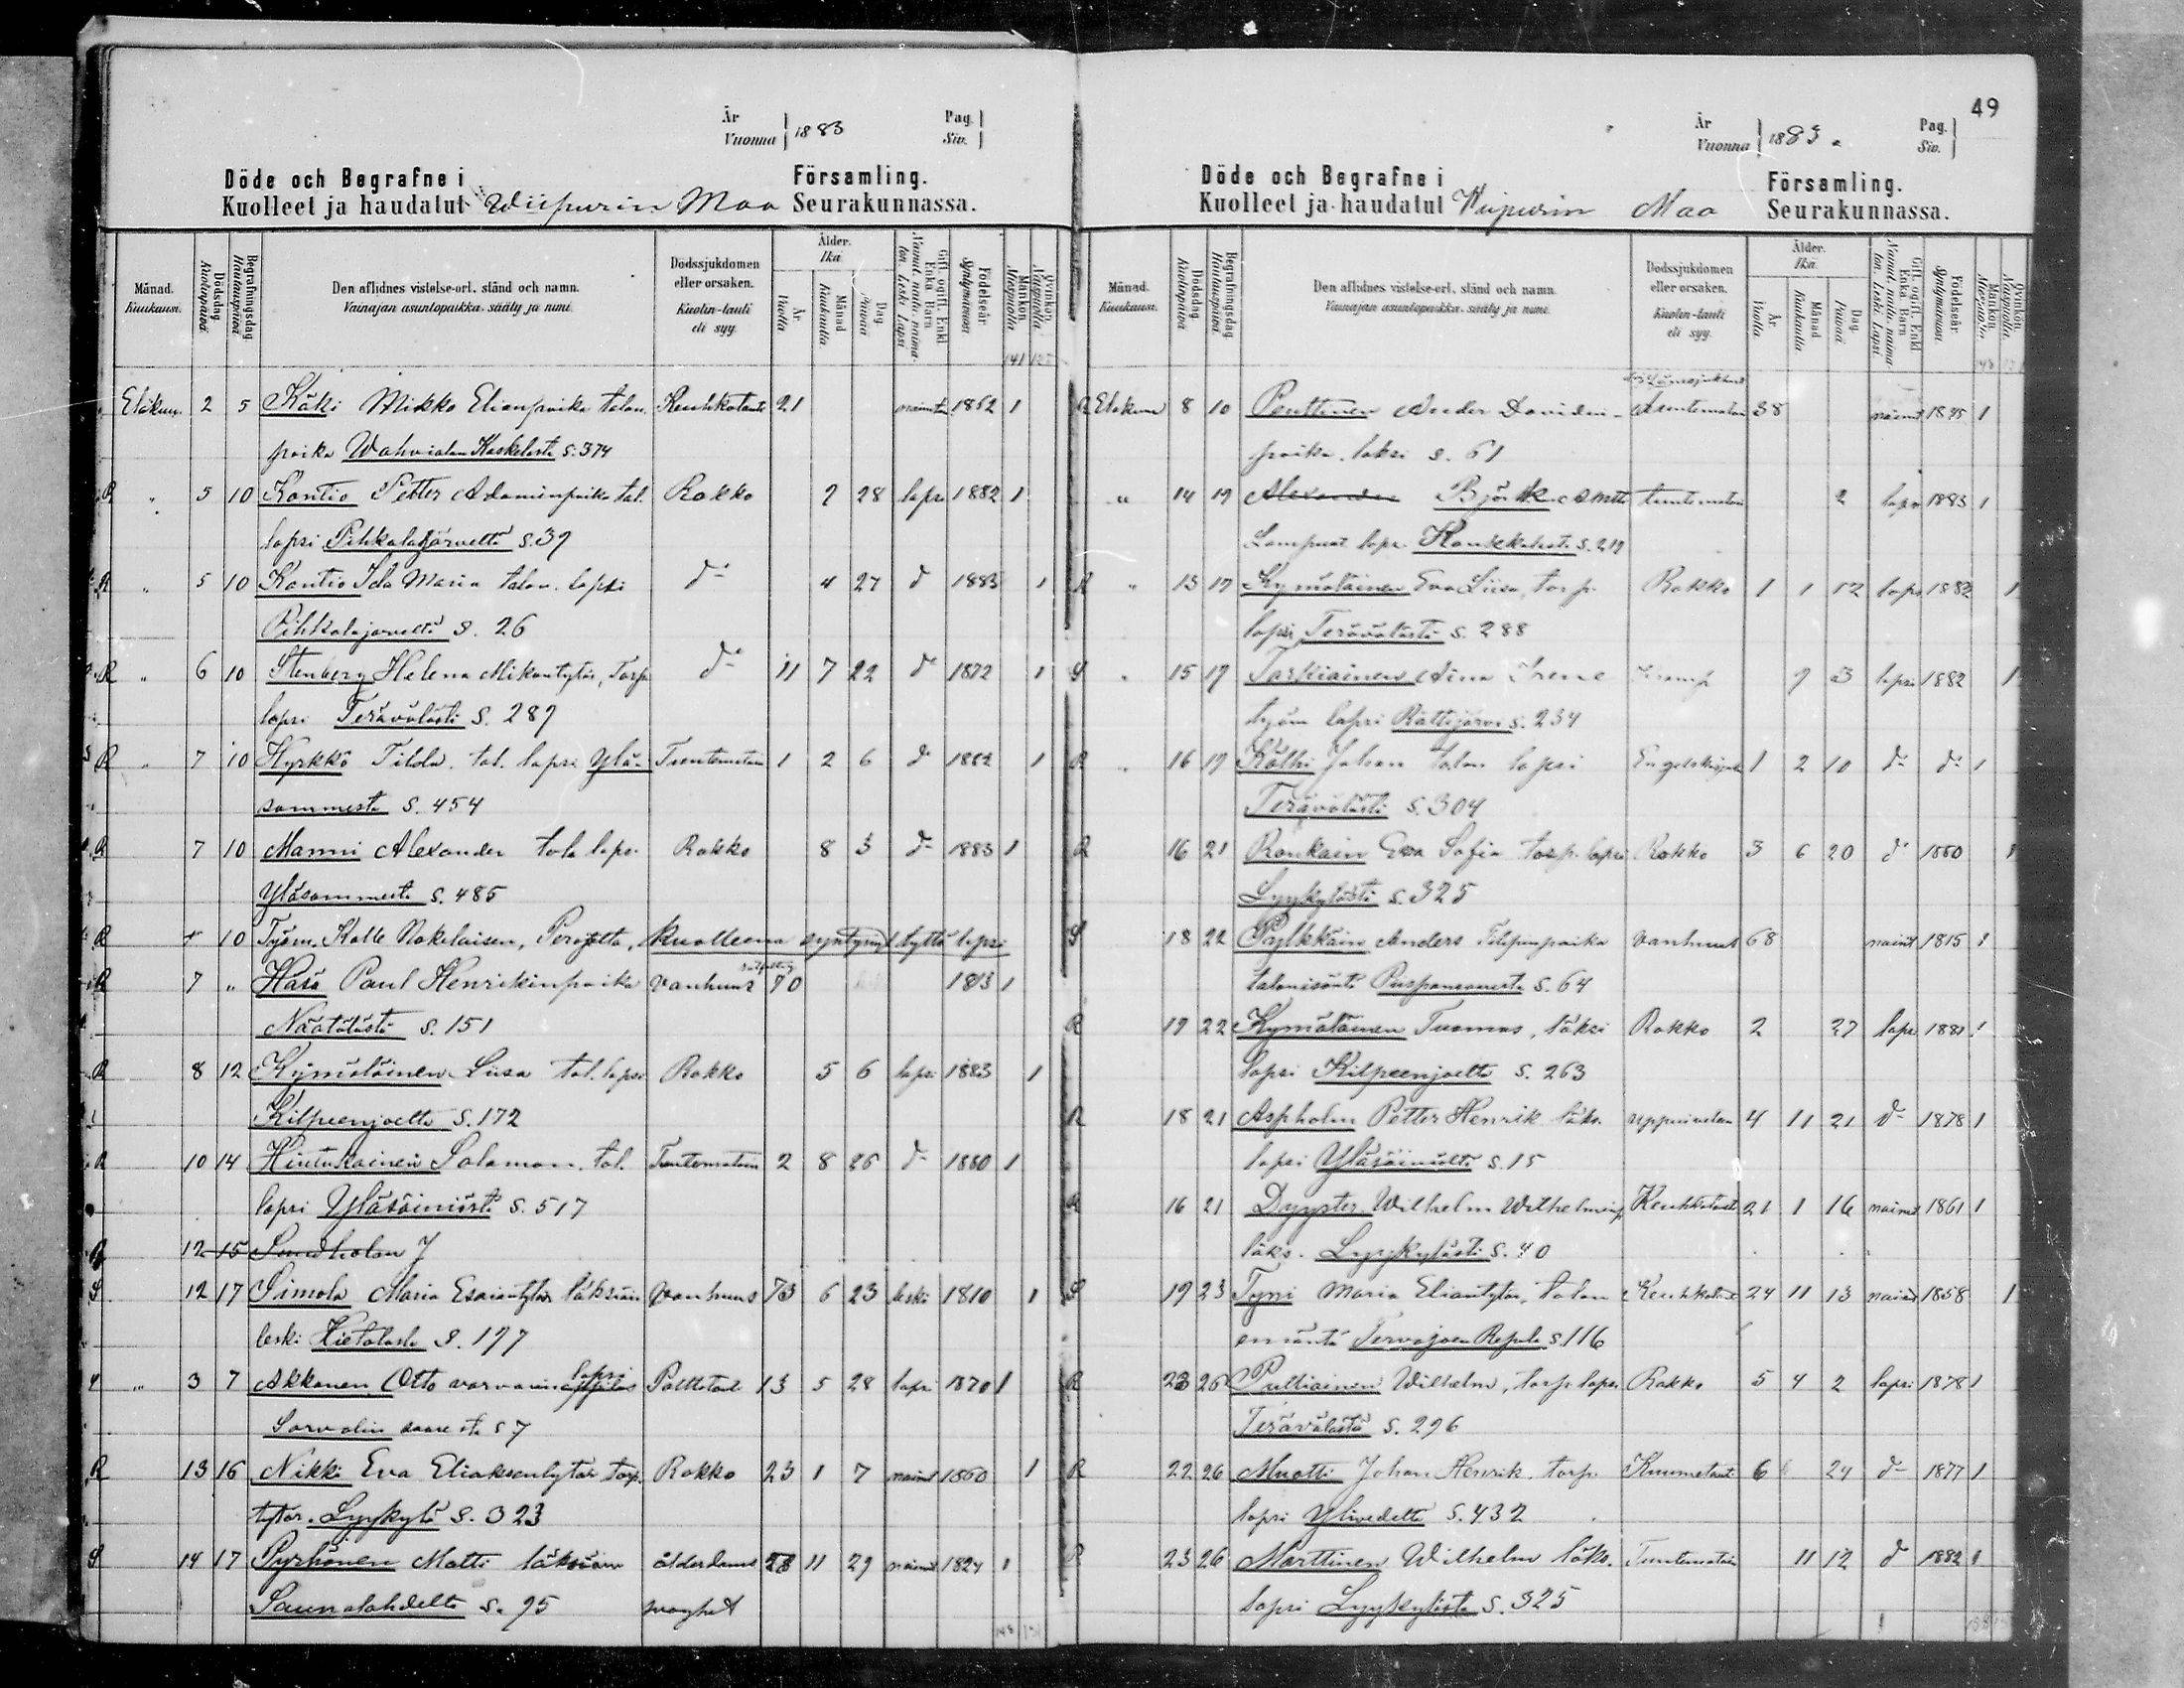 År
Vuonna } 1883
Pag.
Siv. }
Döde och Begrafne i
Församling.
Kuolleet ja haudatut Wiipurin Maa Seurakunnassa.
Månad. Kuukausi.
Dödsdag. Kuolinpäivä.
Begrafningsdag. Hautauspäivä.
Den aflidnes vistelse-ort, stånd och namn.
Vainajan asuntopaikka, sääty ja nimi.
Dödssjukdomen eller orsaken.
Kuolin-tauti eli syy.
Ålder. Ikä.
År. Vuotta
Månad. Kuukautta
Dag. Päivää
Gift, ogift, Enkl. Enka, Barn
Födelseår. Syntymävuosi
Mankön. Miespuolia
Qvinkön. Naispuolia
141
Eläkuu 2 5 Käki Mikko Elianpoika talon. Keuhkotauti 21 1862 1
poika Wahvialan Kaskelasta S. 374
R " 5 10 Kontio Petter Adaminpoika tal. Rokko 2 28 lapsi 1882 1
lapsi Pihkalajärveltä S. 37
R " 5 10 Kontio Ida Maria talon. lapsi d:o 4 27 d 1883 1
Pihkalajärveltä S. 26
R " 6 10 Stenberg Helena Mikontytär, Torp. d:o 11 7 22 d 1872 1
lapsi Terävälästi S. 287
R " 7 10 Hyrkkö Tilda. tal. lapsi Ylä- Tuntematon 1 2 6 d 1882 1
sommesta S. 454
R 7 10 Manni Alexander tal. laps. Rokko 8 3 d 1883 1
Yläsommesta S. 485
R 10 Työm. Kalle Nokelaisen, Perojolta, kuolleena syntynyt tyttö lapsi
R 7 " Hasa Paul Henrikinpoika vanhuus 70 1813 1
Näätälästi S. 151
R 8 12 Kymäläinen Liisa tal. lapsi Rokko 5 6 lapsi 1883 1
Kilpeenjoelta S. 172
R 10 14 Hintukainen Salamon. tal. Tuntematon 2 8 26 d 1880 1
lapsi Yläsäiniöstä S. 517
R 12 15 Sundholm J
S 12 17 Simola Maria Esaiantytär läksiän vanhuus 73 6 23 leski 1810 1
leski Hietalasta S. 177
" 3 7 Akkanen Otto lapsi 13 5 28 lapsi 1870 1
Sorvalin saaresta S 7
R 13 16 Nikki Eva Eliaksentytär torp. Rokko 23 1 7 naimat 1860 1
tytär. Lyykylä S. 323
S 14 17 Pyrhönen Matti läksiän ålderdoms 11 29 naimat 1824 1
Saunalahdelta S. 95 svaghet
49
År
Vuonna } 1883.
Pag.
Siv. }
Döde och Begrafne i
Församling.
Kuolleet ja haudatut Wiipurin Maa Seurakunnassa.
Månad. Kuukausi.
Dödsdag. Kuolinpäivä.
Begrafningsdag. Hautauspäivä.
Den aflidnes vistelse-ort, stånd och namn.
Vainajan asuntopaikka, sääty ja nimi.
Dödssjukdomen eller orsaken.
Kuolin-tauti eli syy.
Ålder. Ikä.
År. Vuotta
Månad. Kuukautta
Dag. Päivää
Gift, ogift, Enkl. Enka, Barn
Födelseår. Syntymävuosi
Mankön. Miespuolia
Qvinkön. Naispuolia
R Elokuu 8 10 Penttinen Ander Davidin- 38 naimat 1845 1
poika. laksi s. 61
" 14 19 Alexander Björk Antti tuntematon 2 lapsi 1883 1
lapsi S. 219
R " 13 17 Kymäläinen Eva Liisa, torp. Rokko 1 1 12 laps 1882 1
lapsi Terävälästi S. 288
S " 15 17 Tarkiainen Aina Irene Kramp 9 3 lapsi 1882 1
työm lapsi Rättijärvi S. 234
R " 16 19 Kälhi Johan talon lapsi 1 2 10 d:o d:o 1
Terävälästi S. 304
R 16 21 Ronkain Eva Sofia torp. lapsi Rokko 3 6 20 d 1880 1
Lyykylästi S. 325
S 18 22 Pylkkäin Anders Filipinpoika vanhuus 68 naint 1815 1
talonisäntä S. 64
R 19 22 Kymäläinen Tuomas, läksi Rokko 2 27 laps 1881 1
lapsi Kilpeenjoelta S. 263
R 18 21 Aspholm Petter Henrik läks. 4 11 21 d 1878 1
lapsi Yläsäiniöltä S. 15
R 16 21 Dyyster Wilhelm Wilhelminp Keuhkotauti 21 1 16 naimat 1861 1
läks. Lyykylästi S. 40
S 19 23 Tyni Maria Eliantytär, talon Keuhkotauti 24 11 13 naint 1858 1
emäntä Tervajoen Repola S. 116
R 23 26 Pulliainen Wilhelm, torp. lapsi Rokko 5 4 2 lapsi 1878 1
Terävälästä S. 296
R 22 26 Muotti Johan Henrik. torp. Kuumetauti 6 24 d 1877 1
lapsi Ylivedeltä S. 432
R 23 26 Marttinen Wilhelm läks. Tuntematon 11 12 d 1882 1
lapsi Lyykylästä S. 325